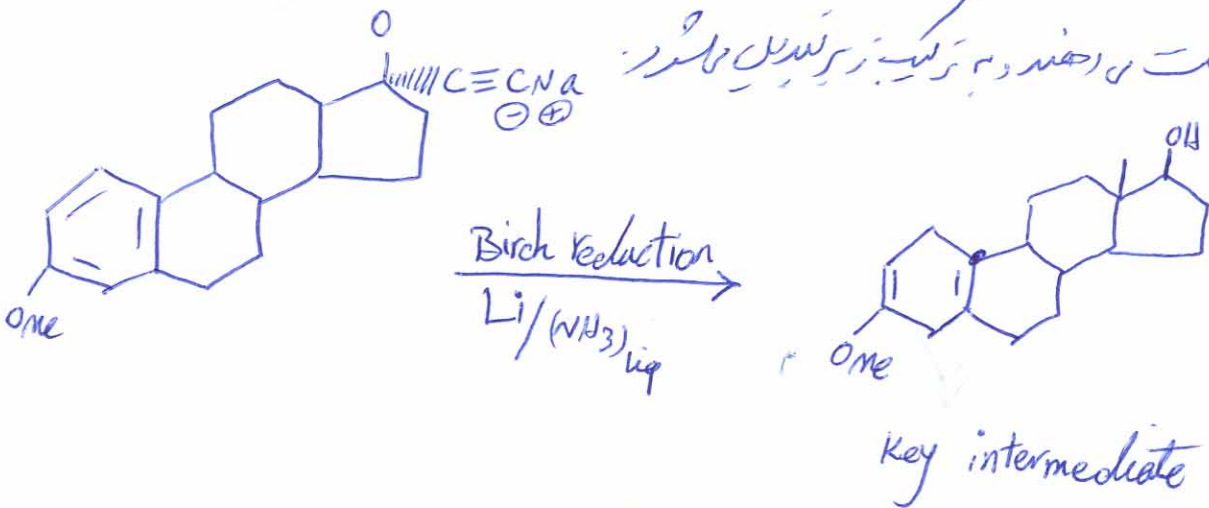 ت می دهند و به ترکیب زیر تبدیل می شود.
O
C≡CNa
⊖ ⊕
OMe
Birch reduction
Li/(NH3)liq
OH
OMe
Key intermediate